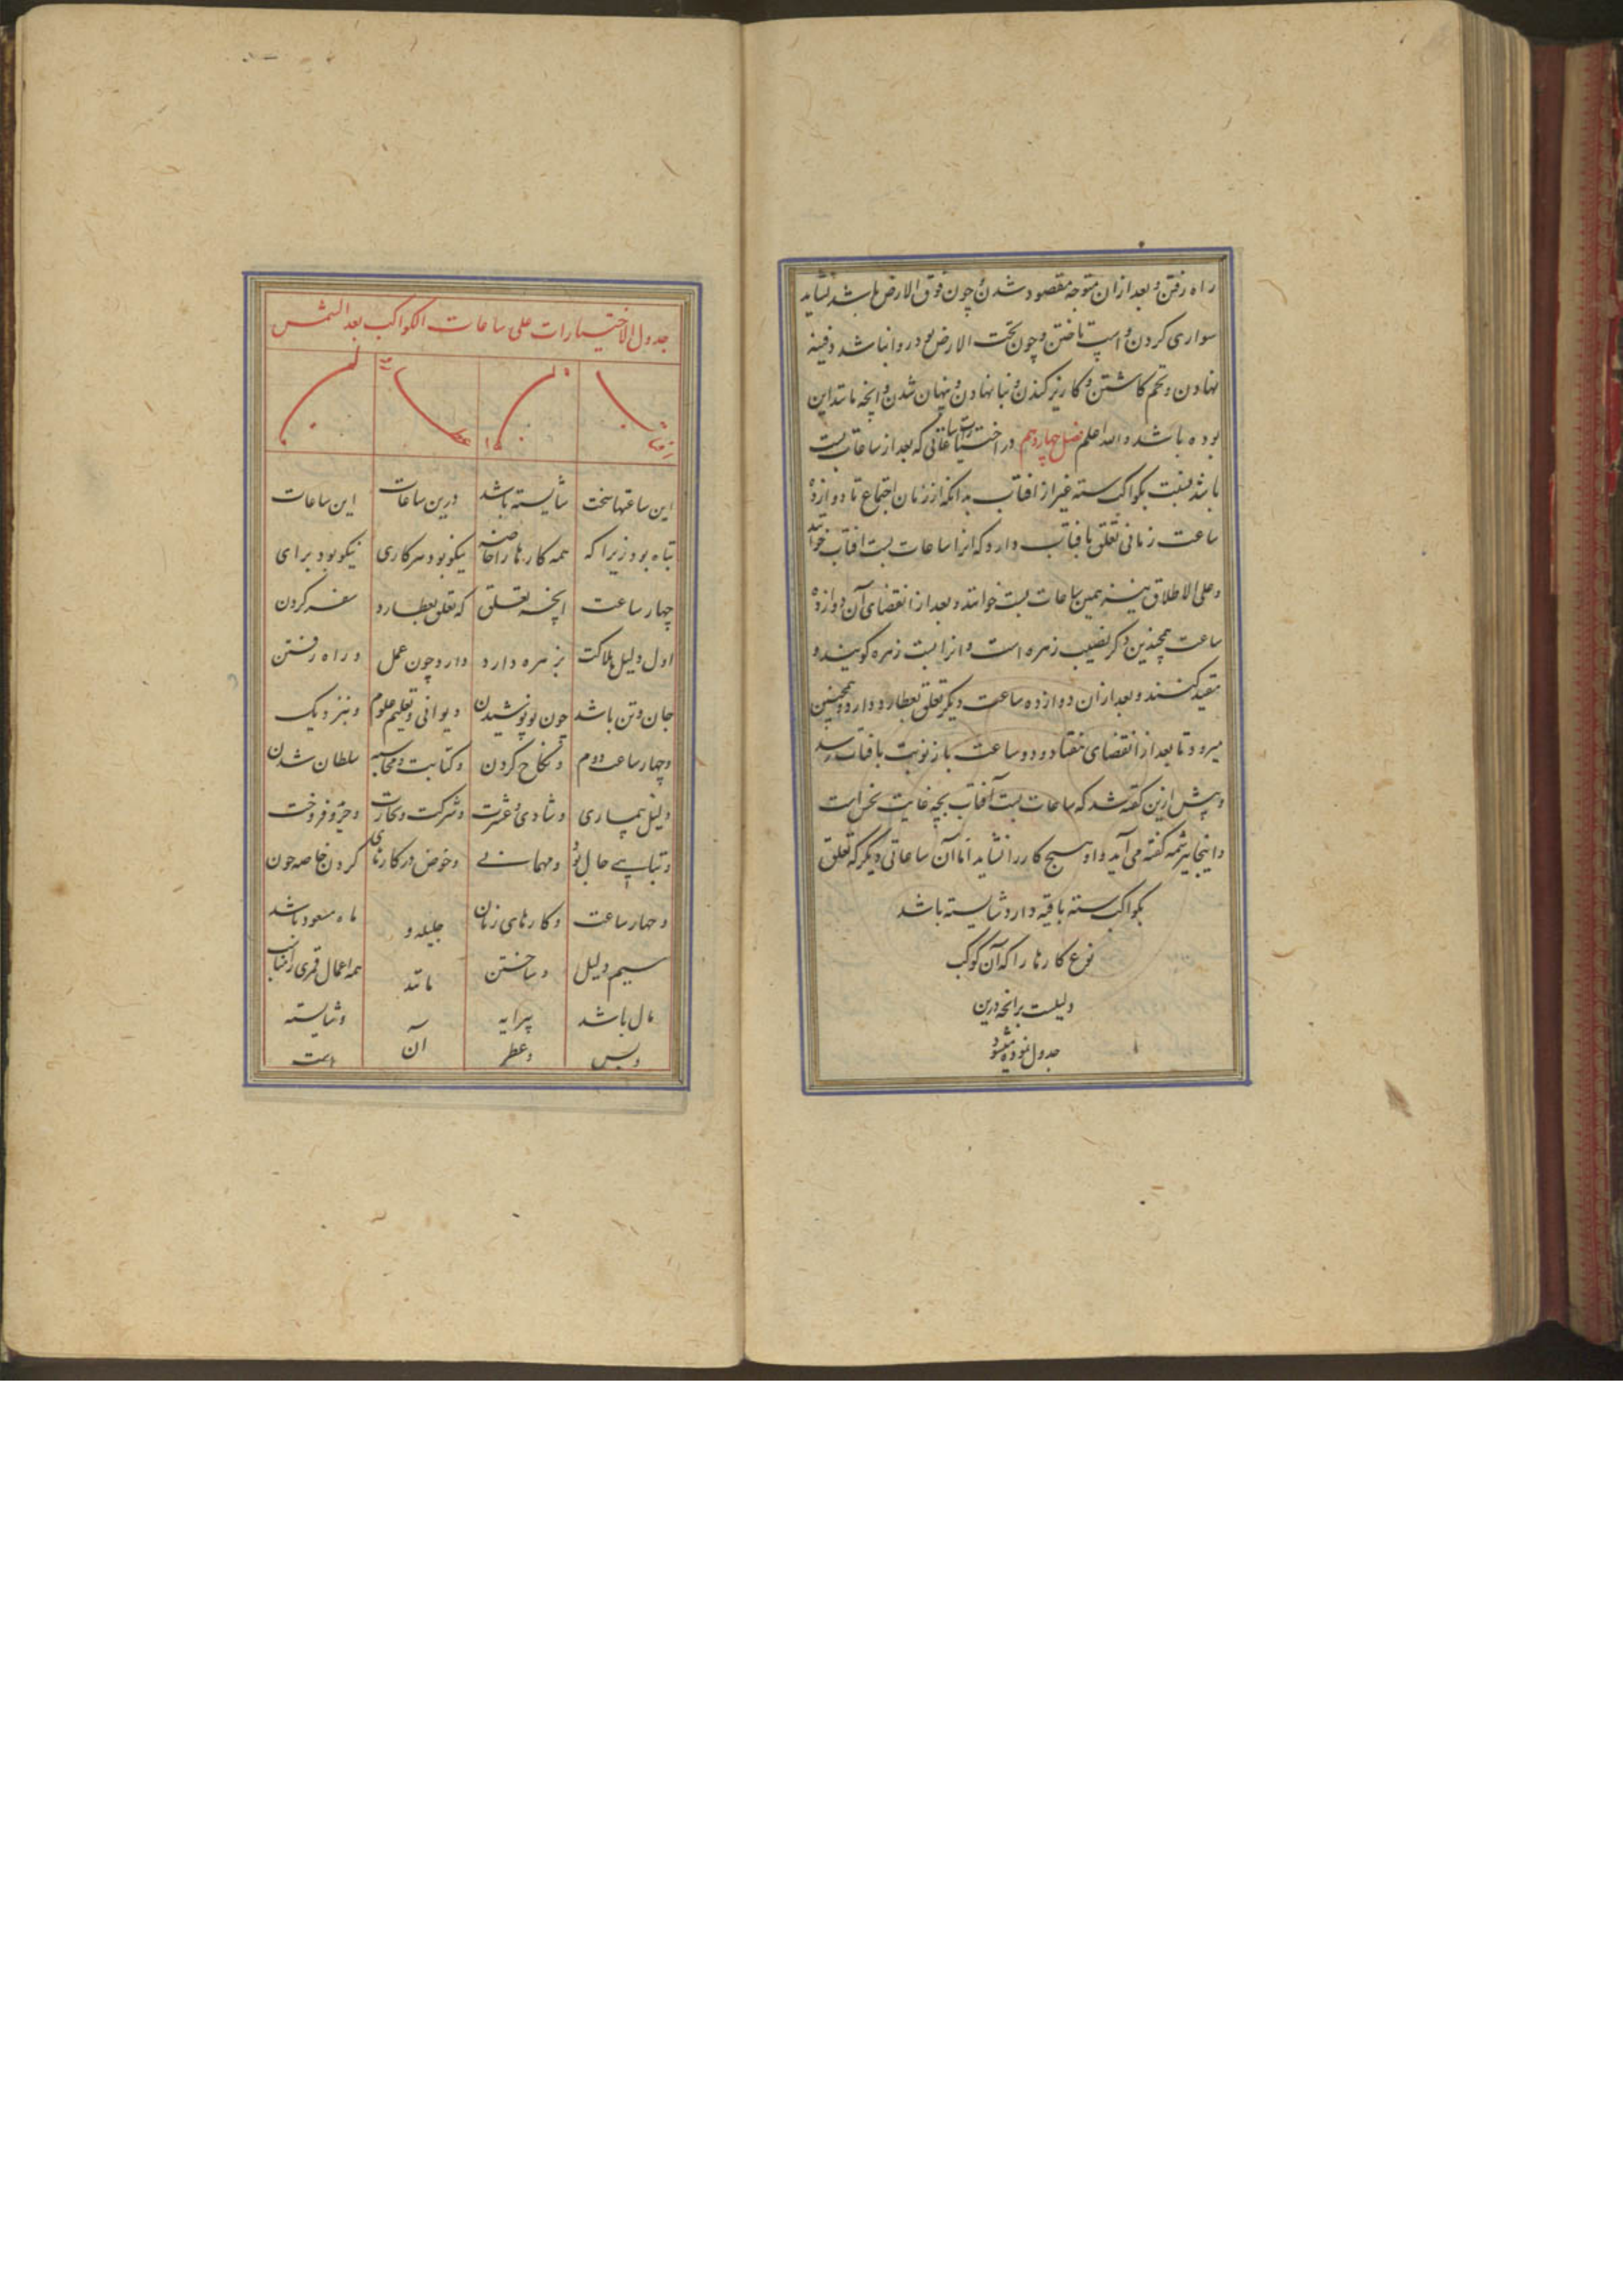 راه رفتن و بعد ازان متوجه مقصود شدن و چون فوق الارض باشد نشاید
سواری کردن و اسپ تاختن و چون تحت الارض بود روا نباشد دفینه
نهادن و تخم کاشتن و کاریز کندن و بنا نهادن و پنهان شدن و انچه مانند این
بوده باشد والله اعلم فصل چهاردهم در اختیارات ساعاتی که بعد از ساعات بست
باشد بنسبت بکواکب سته غیر از افتاب بدانکه از زمان اجتماع تا دوازده
ساعت زمانی تعلق بافتاب دارد که انرا ساعات بست افتاب خوانند
و علی الاطلاق نیز همین ساعات بست خوانند و بعد از انقضای آن دوازده
ساعت همچنین دکر نصیب زهره است و انرا بست زهره کویند و
مقید کنند و بعد ازان دوازده ساعت دیکر تعلق بعطارد دارد و همچنین
میرود تا بعد از انقضای هفتاد و دو ساعت باز نوبت بافتاب رسد
و پیش ازین کفته شد که ساعات بست آفتاب بچه غایت نحس است
و اینجا نیز شمه کفته می آید و او هیچ کار را نشاید اما آن ساعاتی دیکر که تعلق
بکواکب سته باقیه دارد شایسته باشد
نوع کارها را که آن کوکب
دلیلست بر انچه درین
جدول نموده میشود
جدول الاختیارات علی ساعات الکواکب بعد الشمس
این ساعتها سخت
تباه بود زیرا که
چهار ساعت
اول دلیل هلاکت
جان و تن باشد
و چهار ساعت دوم
دلیل بیماری
و تباهی حال بود
و چهار ساعت
سیم دلیل
مال باشد
و بس
شایسته باشد
همه کارها را خاصه
انچه تعلق
بزهره دارد
چون نو پوشیدن
و نکاح کردن
و شادی و عشرت
و مهمانی
و کارهای زنان
و ساختن
پیرایه
و عطر
درین ساعات
نیکو بود هر کاری
که تعلق بعطارد
دارد چون عمل
دیوانی و تعلیم علوم
و کتابت و محاسبه
و شرکت و تجارت
و خوض در کارهای
جلیله و
مانند
آن
این ساعات
نیکو بود برای
سفر کردن
و راه رفتن
و بنزدیک
سلطان شدن
و خرید و فروخت
کردن خاصه چون
ماه مسعود باشد
همه اعمال قمری را
و شایسته
است